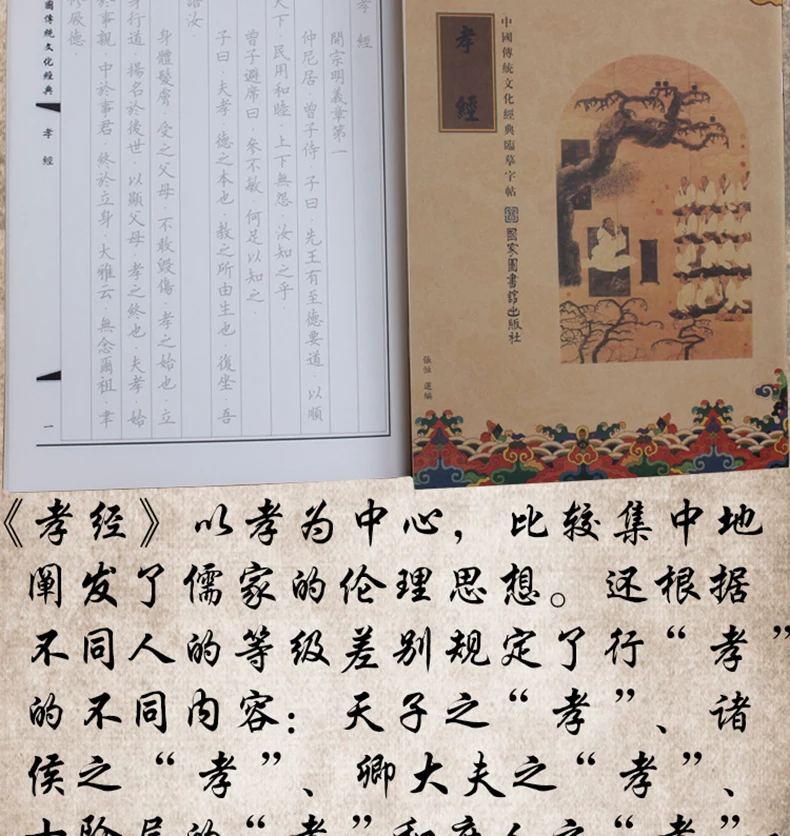 孝經
開宗明義章第一
仲尼居．曾子侍．子曰．先王有至德要道．以順
天下．民用和睦．上下無怨．汝知之乎．
曾子避席曰．參不敏．何足以知之．
子曰．夫孝．德之本也．教之所由生也．復坐．吾
語汝．
身體髮膚．受之父母．不敢毀傷．孝之始也．立
身行道．揚名於後世．以顯父母．孝之終也．夫孝．始
於事親．中於事君．終於立身．大雅云．無念爾祖．聿
修厥德．
國傳統文化經典
孝經
一
孝經
中國傳統文化經典臨摹字帖
國家圖書館出版社
張恒 選編
《孝经》以孝为中心，比较集中地
阐发了儒家的伦理思想。还根据
不同人的等级差别规定了行“孝”
的不同内容：天子之“孝”、诸
侯之“孝”、卿大夫之“孝”、